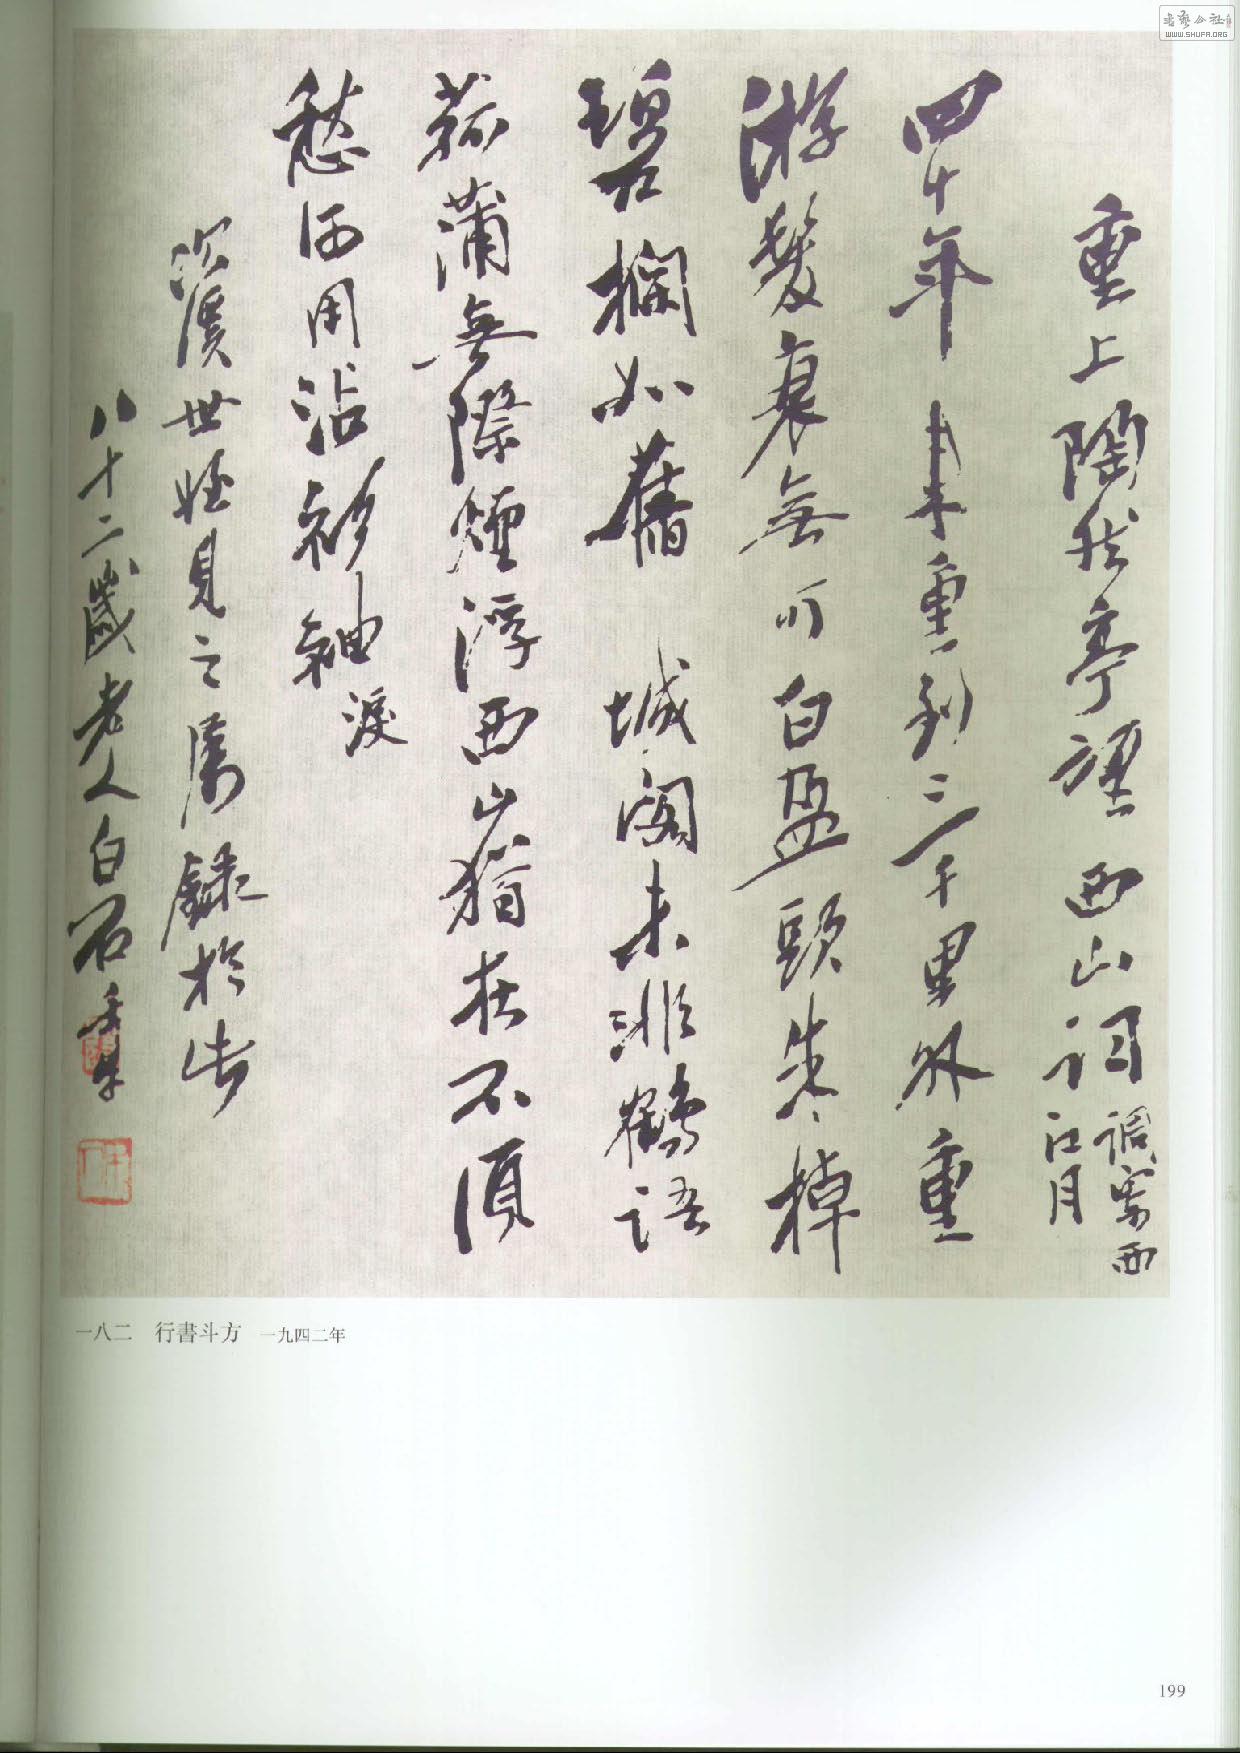 重上陶然亭望西山詞調寄西
江月
四十年來重到三千里外重
游髮衰無可白盈頭朱棹
碧欄如舊 城闕未非鶴語
菰蒲無際煙浮西山猶在不須
愁何用沾衫袖淚
次溪世姪見之屬錄於此
八十二歲老人白石
一八二 行書斗方 一九四二年
199
书艺公社
WWW.SHUFA.ORG